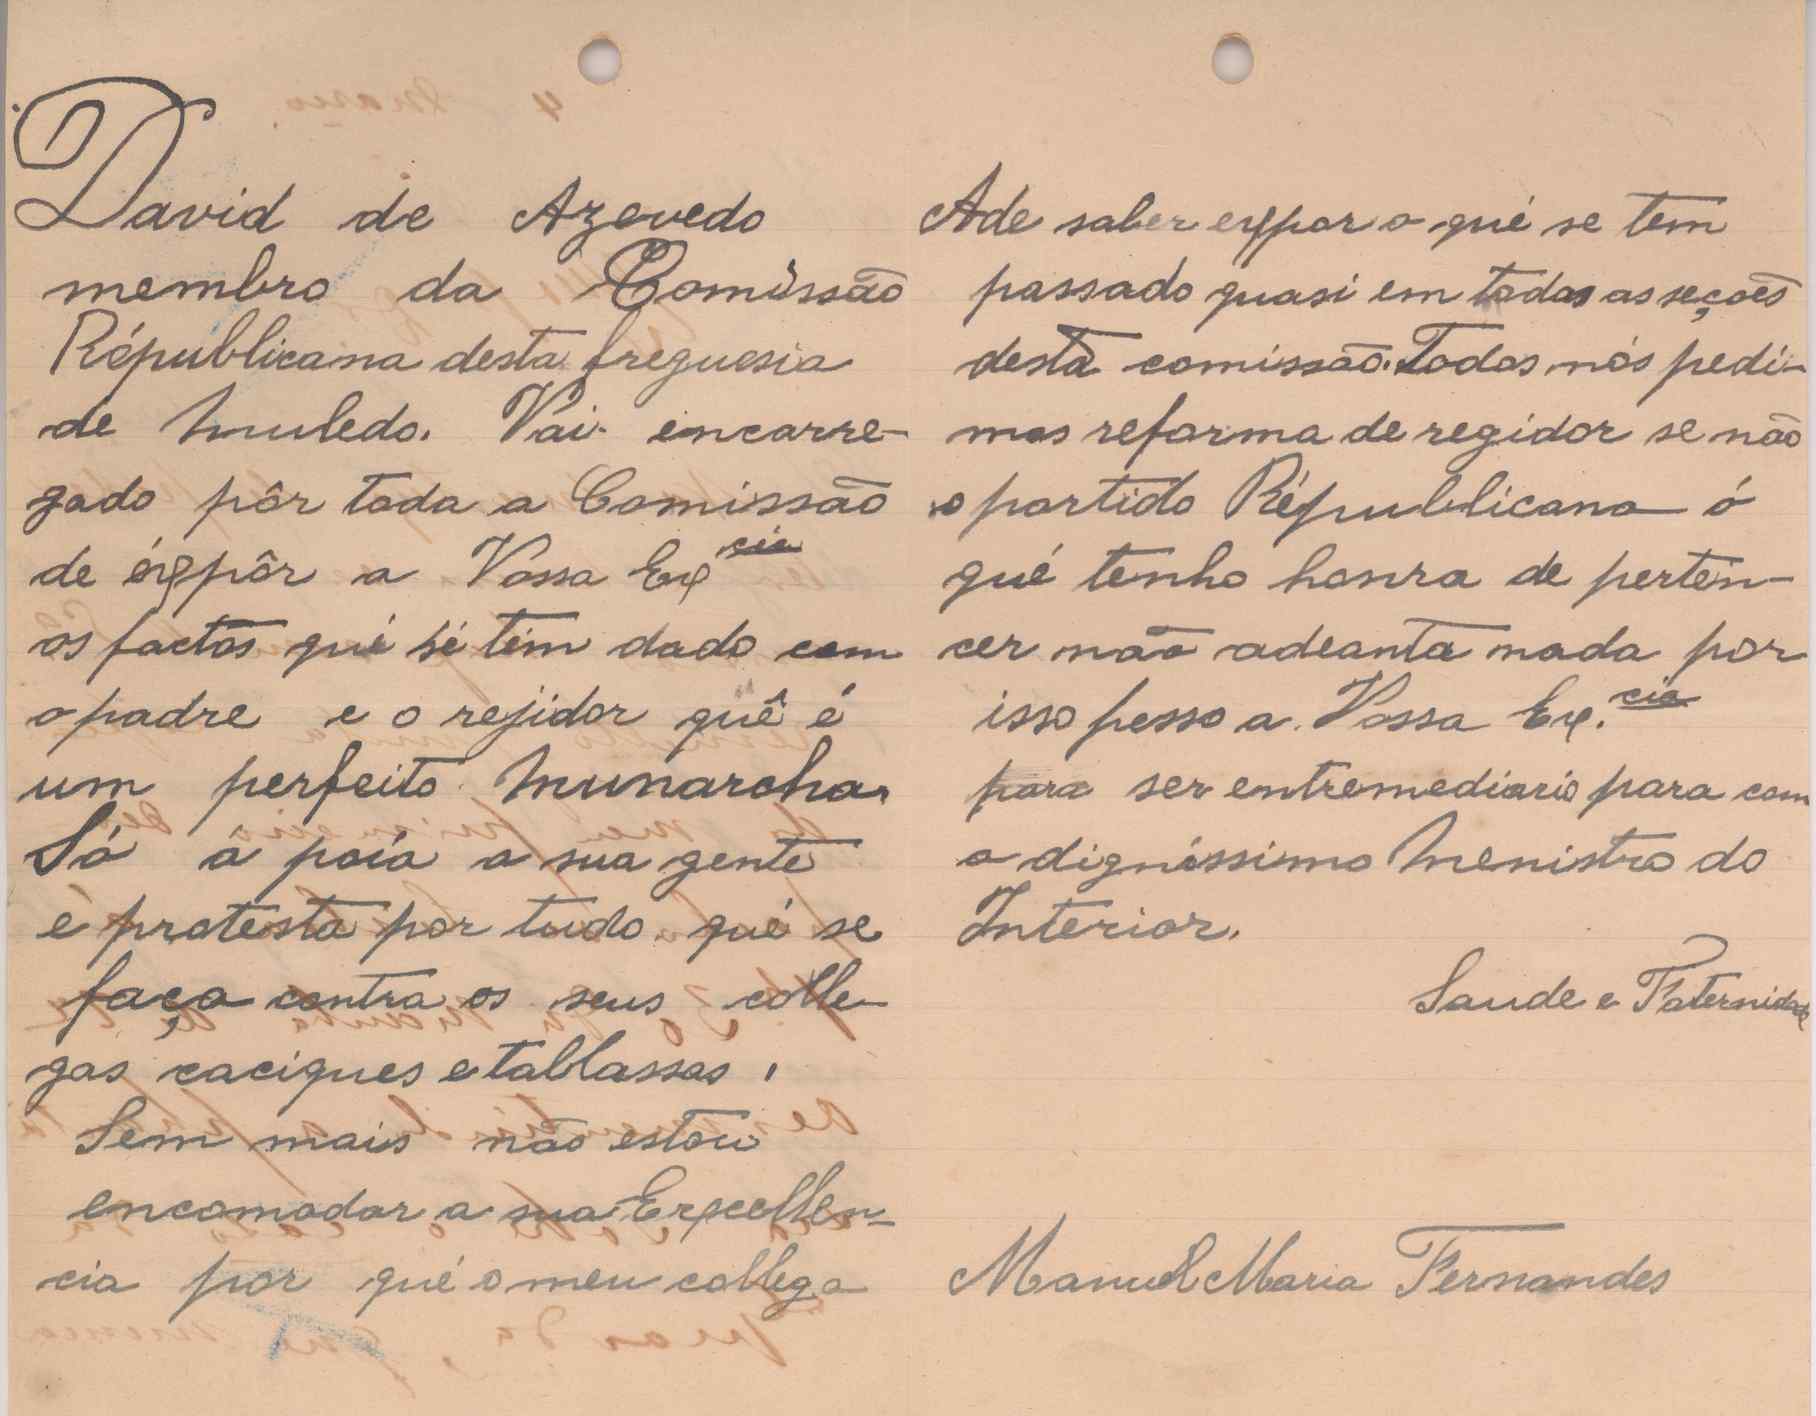 David de Azevedo
membro da Comissão
Républicana desta freguesia
de Muledo. Vai encarre-
gado pôr toda a Comissão
de éxpôr a Vossa Ex cia
os factos qué sé tém dado com
o padre e o rejidor quê é
um perfeito Munarcha.
Só à poia a sua gente
e protésta por tudo qué se
faça contra os seus colle-
gas caciques e tablassas.
Sem mais não estou
encomodar a sua Excellen-
cia por qué o meu collega
Ade saber expor o qué se tem
passado quasi em todas as seçoês
desta comissão. Todos nós pedi-
mos reforma de regidor se não
o partido Républicano ó
qué tenho honra de perten-
cer não adeanta nada por
isso pesso a Vossa Ex. cia
para ser entremediario para com
o dignissimo Menistro do
Interior.
Saude e Faternidade
Manuel Maria Fernandes